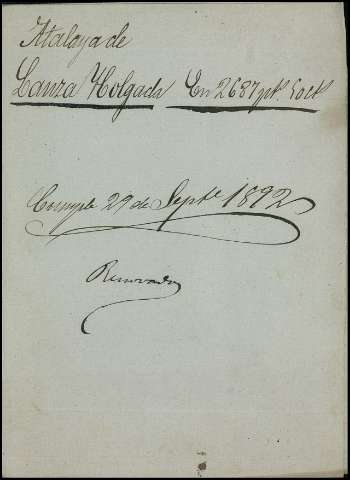 Atalaya de
Lanza Holgada En 2687 pts. 50 cts.
Cumple 29 de Septe. 1892
Renovada